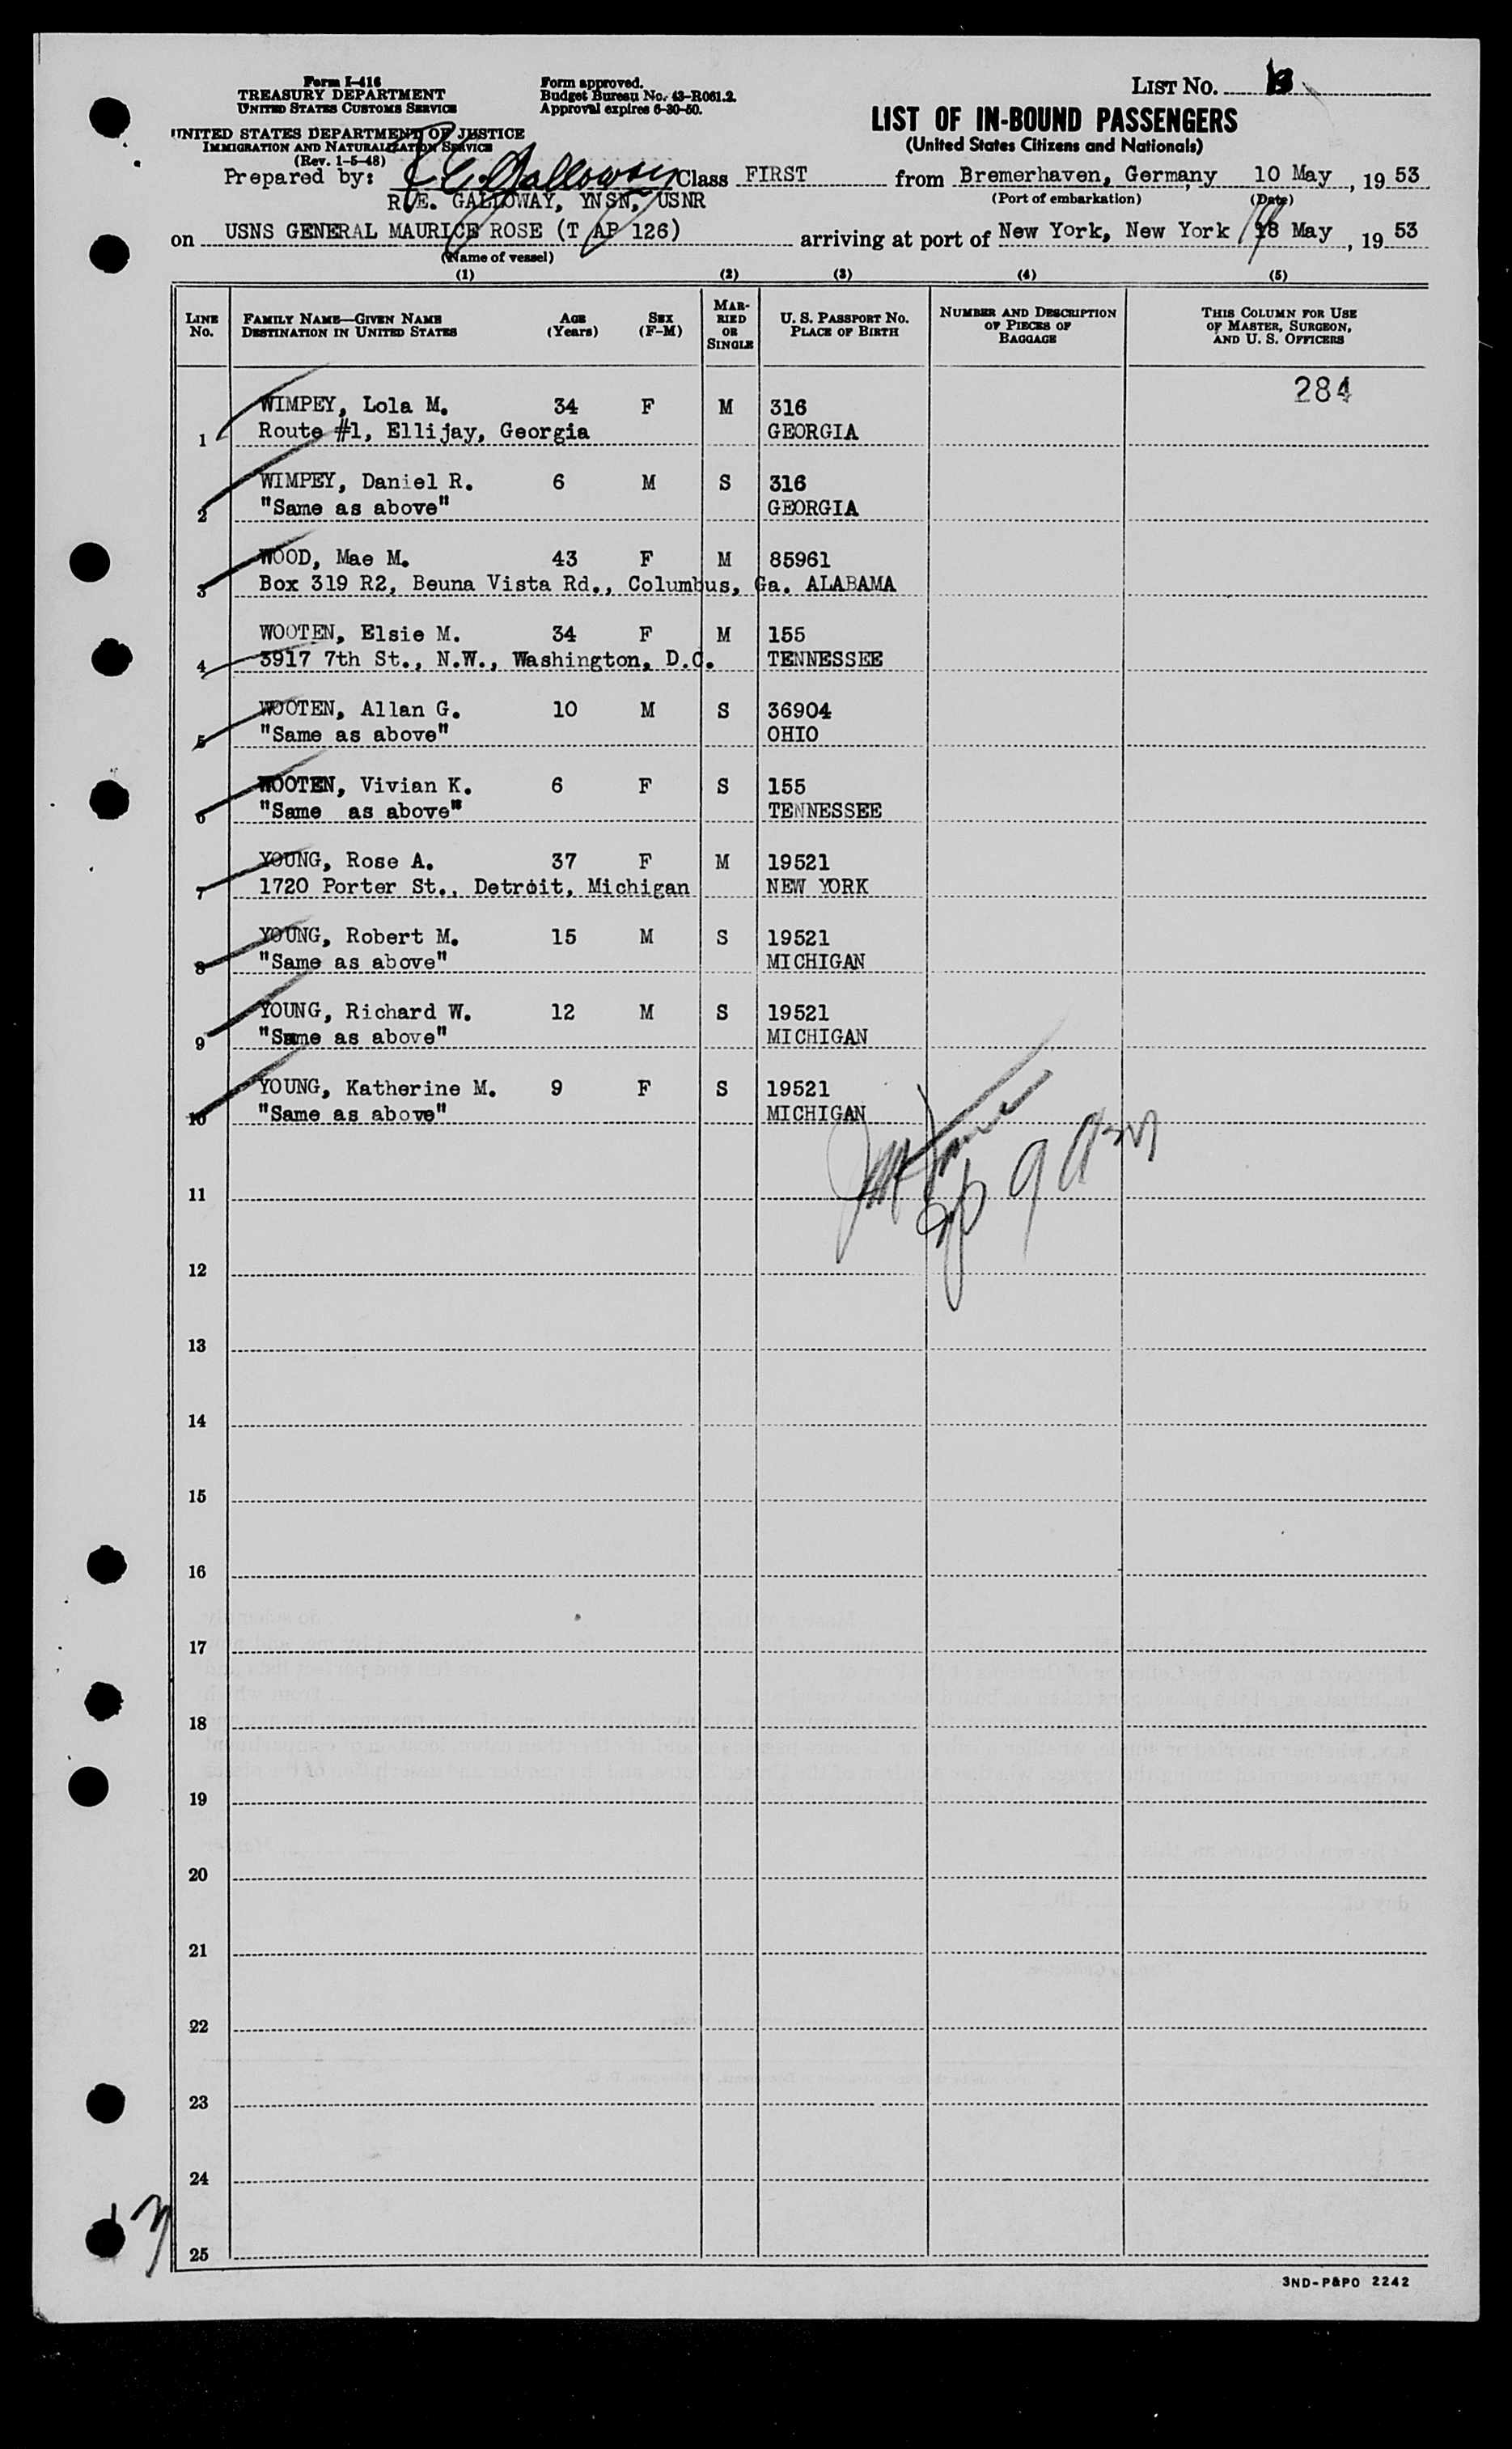 Form I-416
TREASURY DEPARTMENT
UNITED STATES CUSTOMS SERVICE
UNITED STATES DEPARTMENT OF JUSTICE
IMMIGRATION AND NATURALIZATION SERVICE
(Rev. 1-5-48)
Form approved.
Budget Bureau No. 43-R061.2.
Approval expires 6-30-50.
LIST NO.
LIST OF IN-BOUND PASSENGERS
(United States Citizens and Nationals)
Prepared by: R.E. Galloway Class FIRST from Bremerhaven, Germany 10 May, 1953
R. E. GALLOWAY, YNSN, USNR (Port of embarkation) (Date)
on USNS GENERAL MAURICE ROSE (T AP 126) arriving at port of New York, New York May, 1953
(Name of vessel)
(1) (2) (3) (4) (5)
LINE NO. FAMILY NAME—GIVEN NAME DESTINATION IN UNITED STATES AGE (Years) SEX (F-M) MARRIED OR SINGLE U. S. PASSPORT NO. PLACE OF BIRTH NUMBER AND DESCRIPTION OF PIECES OF BAGGAGE THIS COLUMN FOR USE OF MASTER, SURGEON, AND U. S. OFFICERS
284
WIMPEY, Lola M. 34 F M 316
1 Route #1, Ellijay, Georgia GEORGIA
WIMPEY, Daniel R. 6 M S 316
2 "Same as above" GEORGIA
WOOD, Mae M. 43 F M 85961
3 Box 319 R2, Beuna Vista Rd., Columbus, Ga. ALABAMA
WOOTEN, Elsie M. 34 F M 155
4 3917 7th St., N.W., Washington, D.C. TENNESSEE
WOOTEN, Allan G. 10 M S 36904
5 "Same as above" OHIO
WOOTEN, Vivian K. 6 F S 155
6 "Same as above" TENNESSEE
YOUNG, Rose A. 37 F M 19521
7 1720 Porter St., Detroit, Michigan NEW YORK
YOUNG, Robert M. 15 M S 19521
8 "Same as above" MICHIGAN
YOUNG, Richard W. 12 M S 19521
9 "Same as above" MICHIGAN
YOUNG, Katherine M. 9 F S 19521
10 "Same as above" MICHIGAN
9 Am
11
12
13
14
15
16
17
18
19
20
21
22
23
24
25
3ND-P&PO 2242